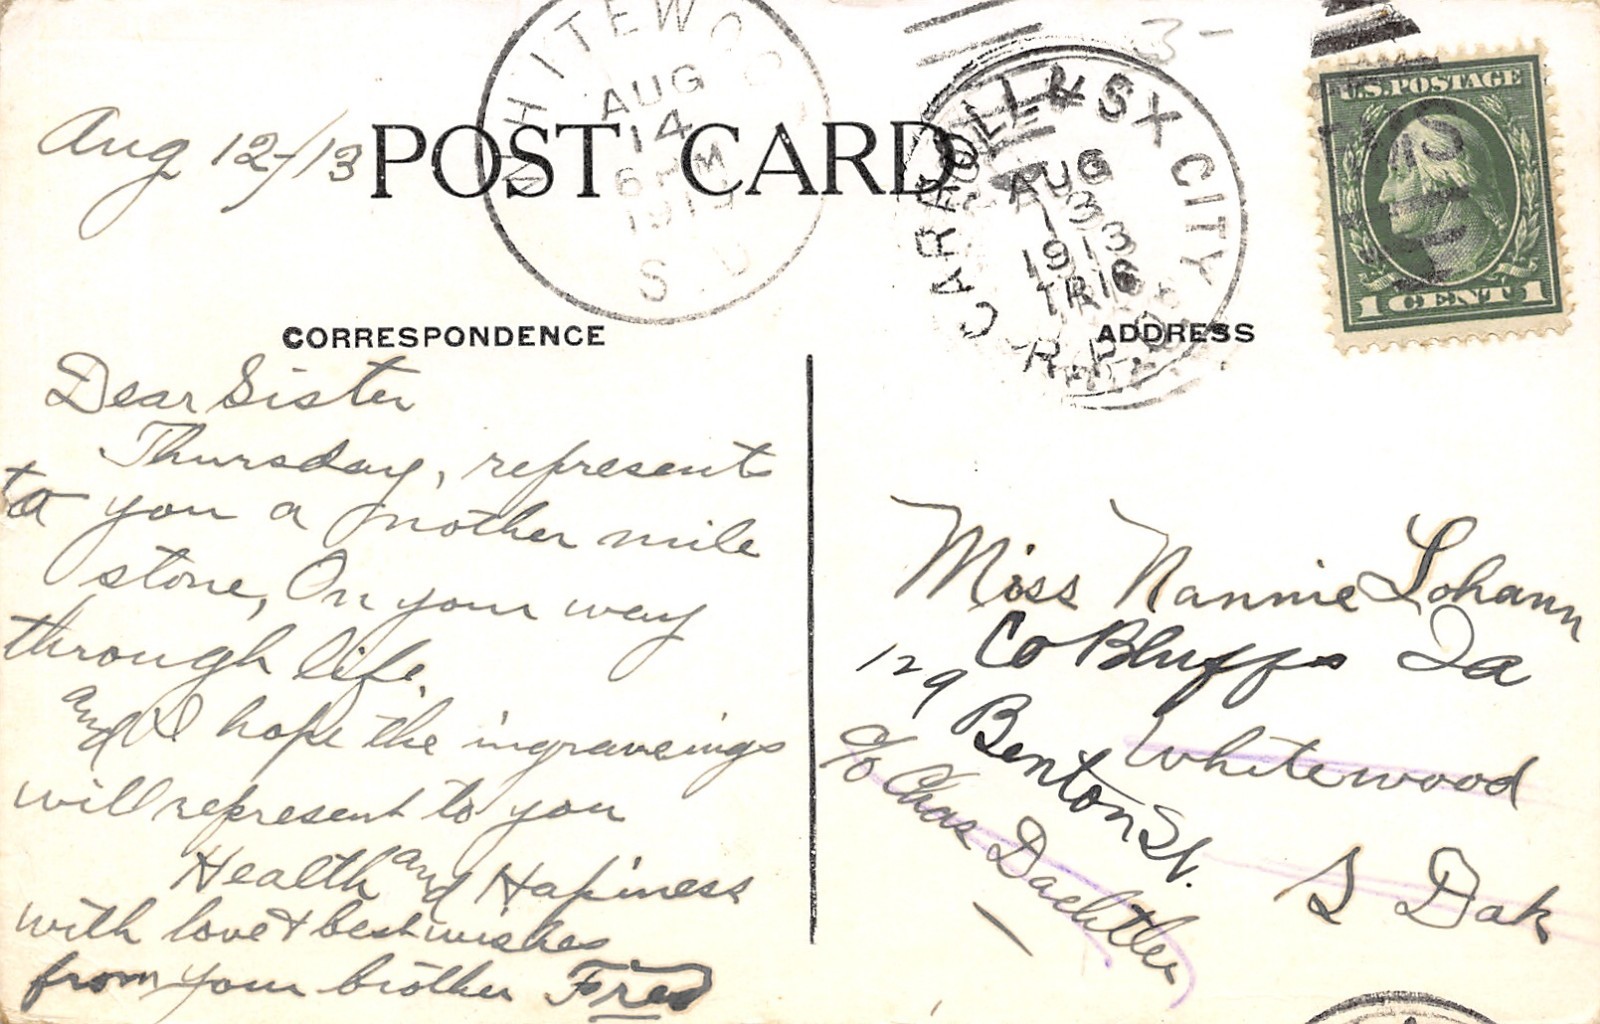 Aug 12-/13
POST CARD
WHITEWOOD
AUG
14
6 PM
1913
S. D.
CARROLL & SX CITY
AUG
13
1913
TR 16
R.P.O.
3-
U.S. POSTAGE
1 CENT 1
CORRESPONDENCE
ADDRESS
Dear Sister
Thursday, represents
to you a nother mile
stone, On your way
through life.
and I hope the ingraveings
will represent to you
Health and Hapiness
with love & best wishes
from your brother Fred
Miss Nannie Lohann
Co Bluffs Ia
129 Benton St.
Whitewood
S Dak
c/o Chas Dachtler